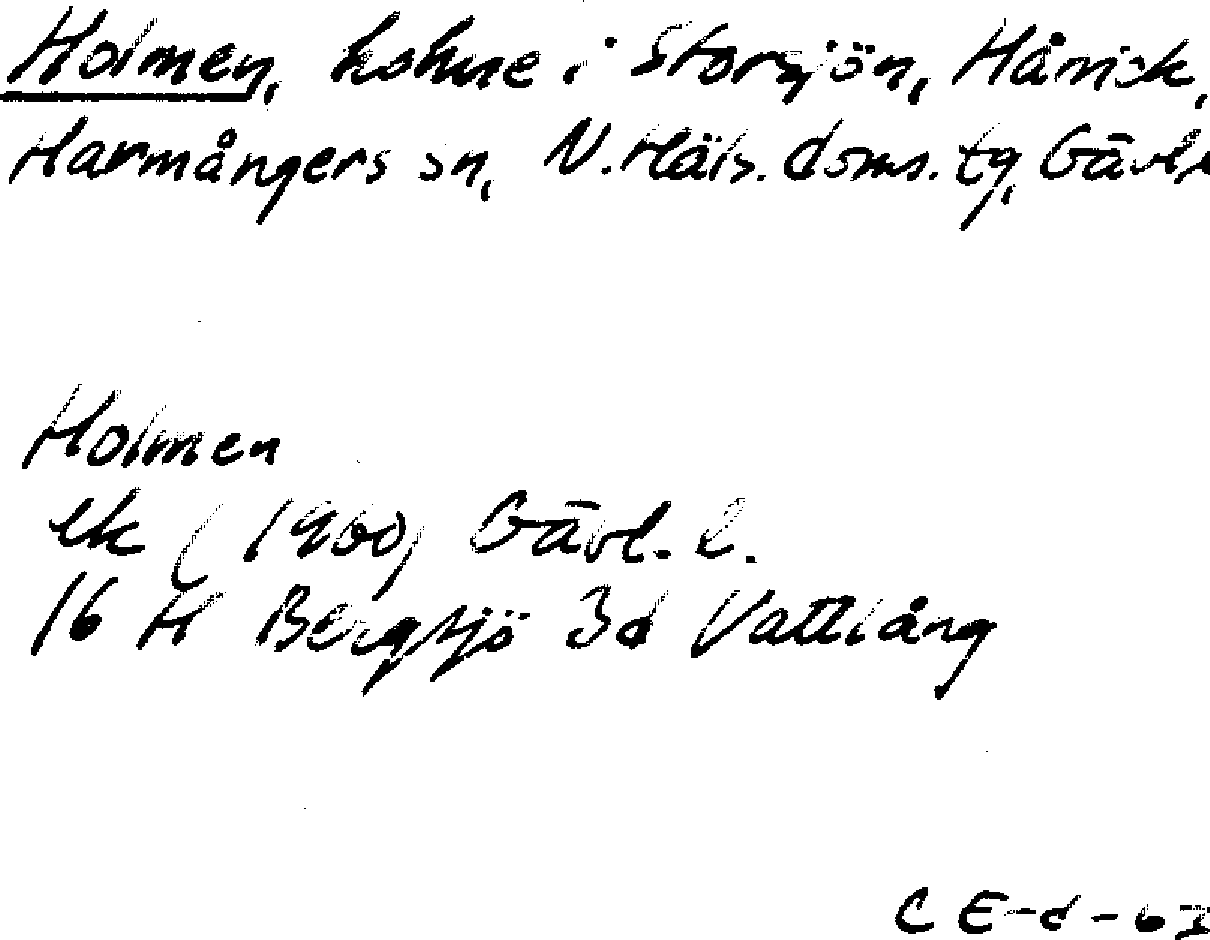 Holmen, holme i Storsjön, Hårick,
Harmångers sn, N. Häls. doms. tg, Gävl.
Holmen
ek (1960) Gävl. l.
16 H Bergsjö 3d Vattlång
C E-d-63